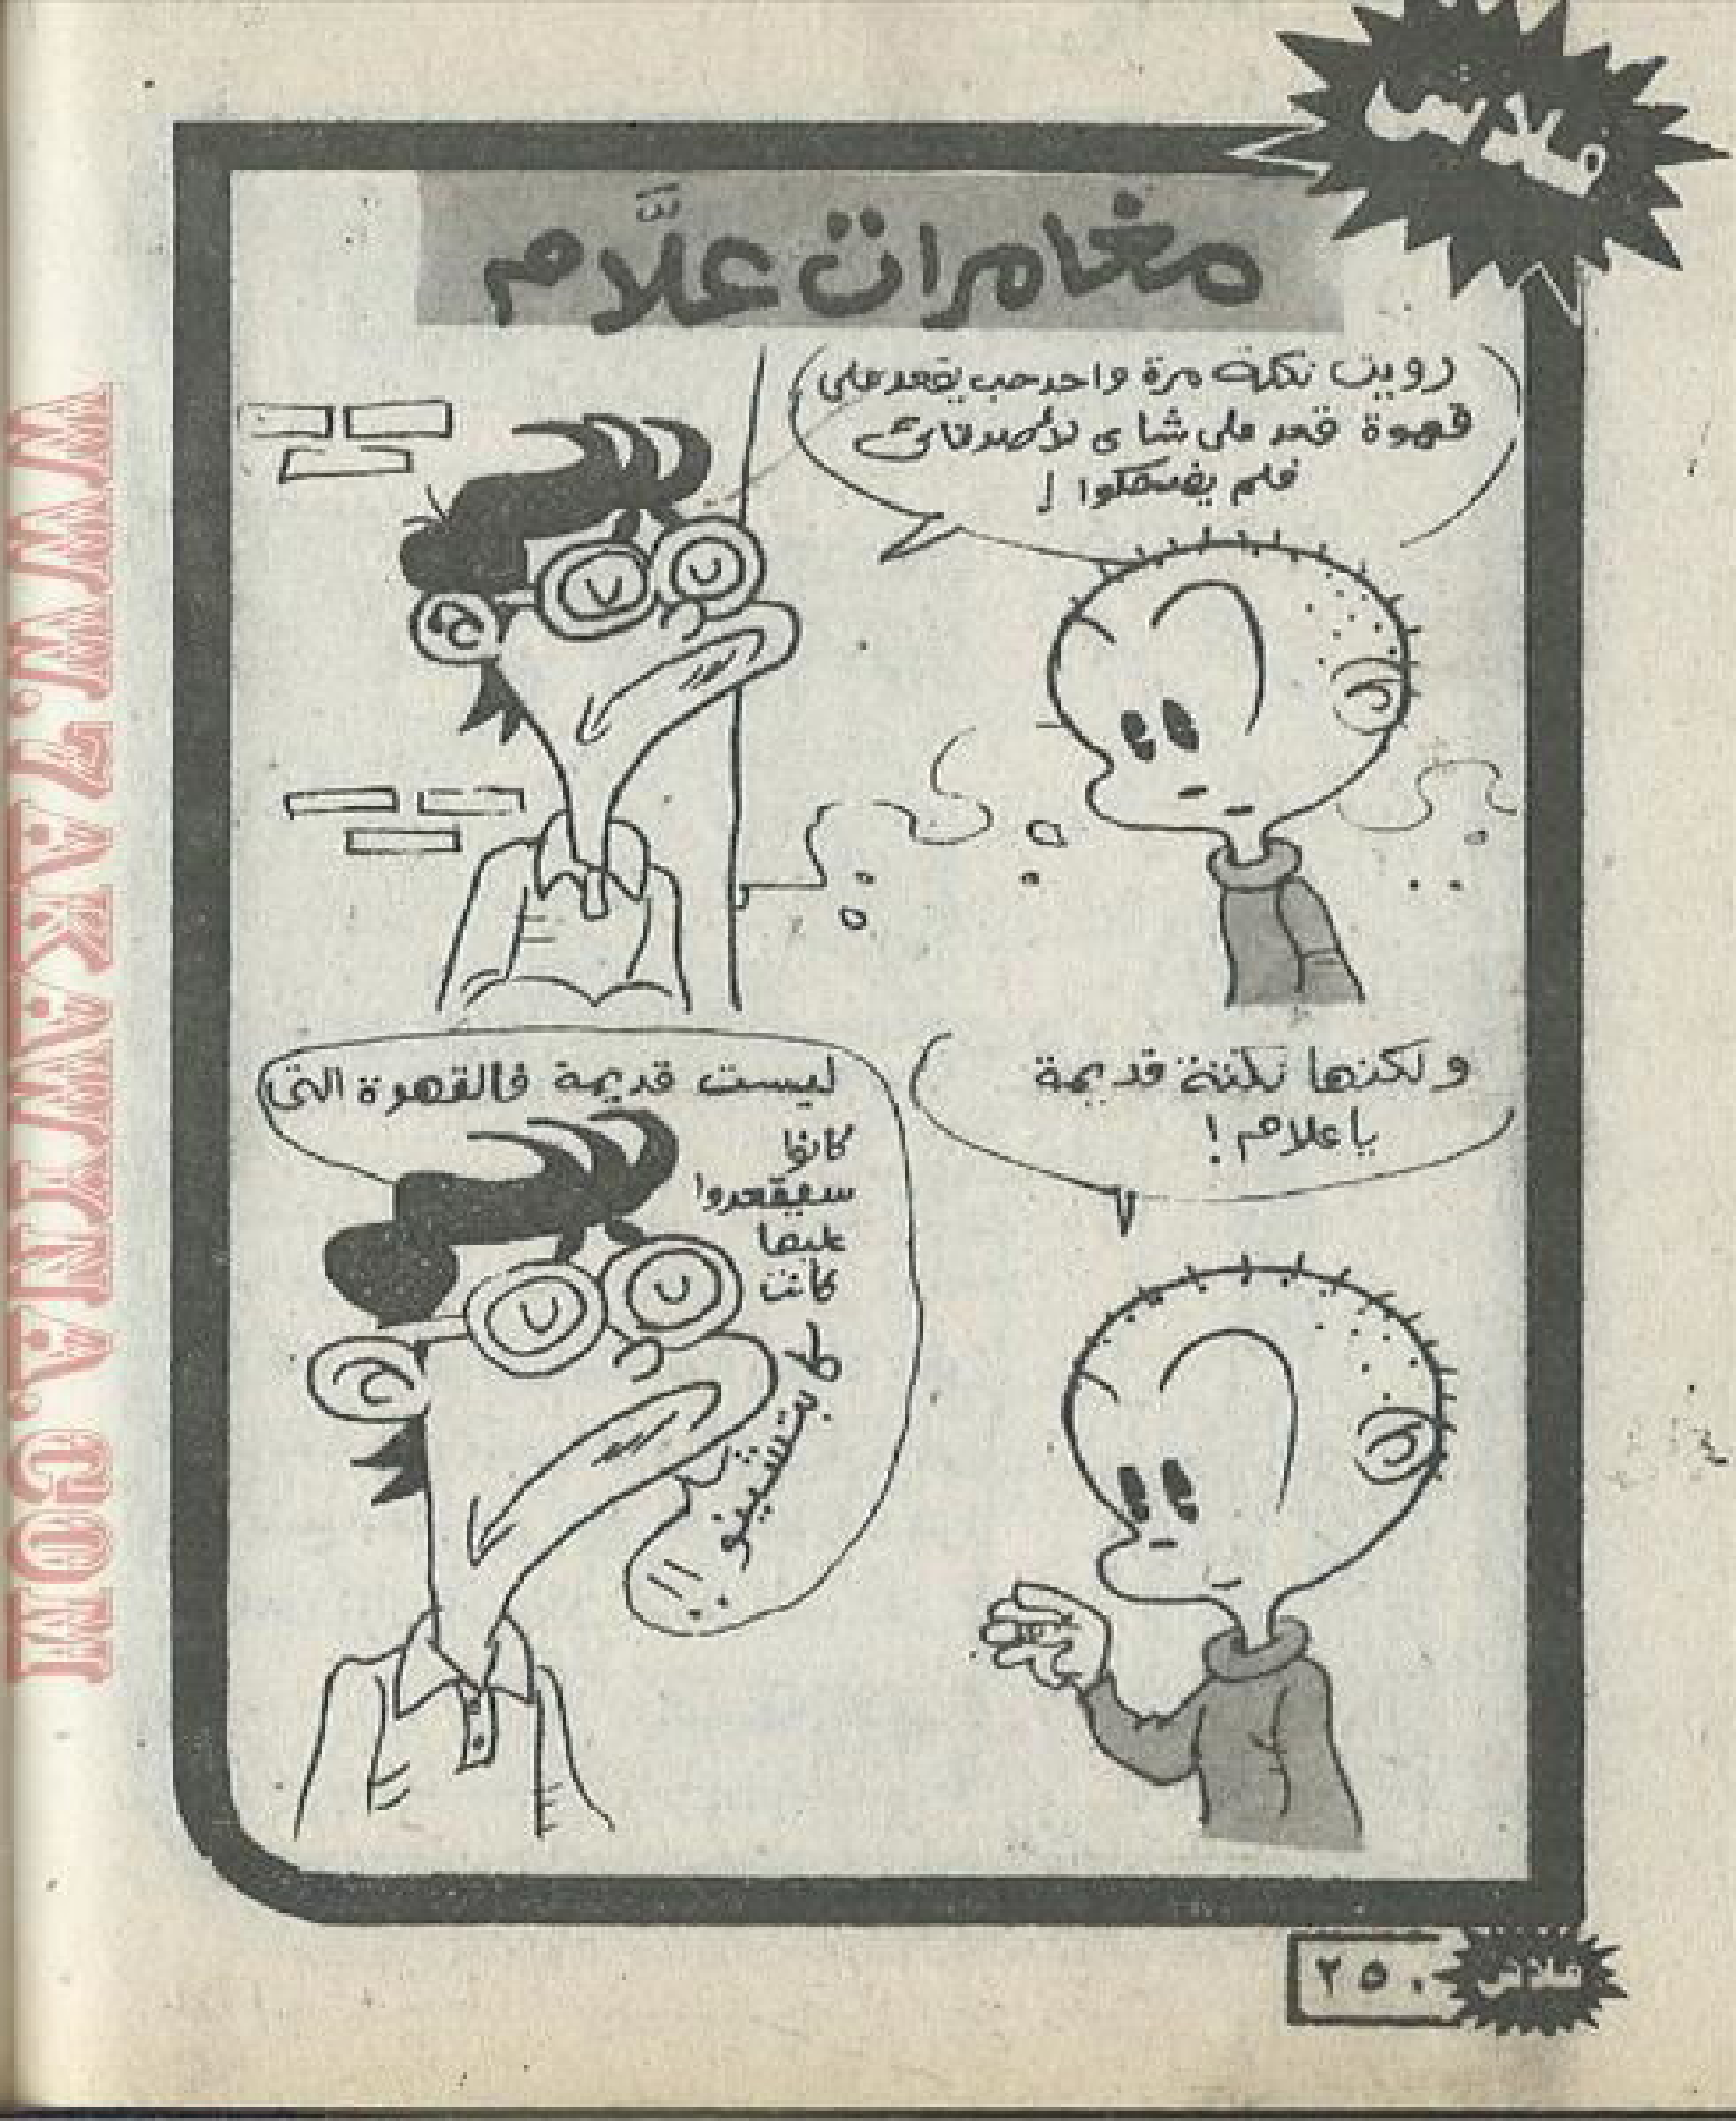 فلاش
مغامرات علَّام
رويت نكتة مرة واحد حب يقعد على
قهوة قعد على شاى لأصدقائى
فلم يضحكوا !
ولكنها نكتة قديمة
يا علام !
ليست قديمة فالقهوة التى
كانوا
سيقعدوا
عليها
كانت
كابتشينو !!
٢٥٠
فلاش
WWW.7AKAWATNA.COM